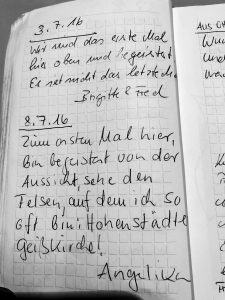 3.7.16
Wir sind das erste Mal
hier oben und begeistert
Es ist nicht das letzte
Brigitte & Fred
8.7.16
Zum ersten Mal hier,
bin begeistert von der
Aussicht, sehe den
Felsen, auf dem ich so
oft bin: Hohenstädte
Geißkirche!
Angelika
AUS